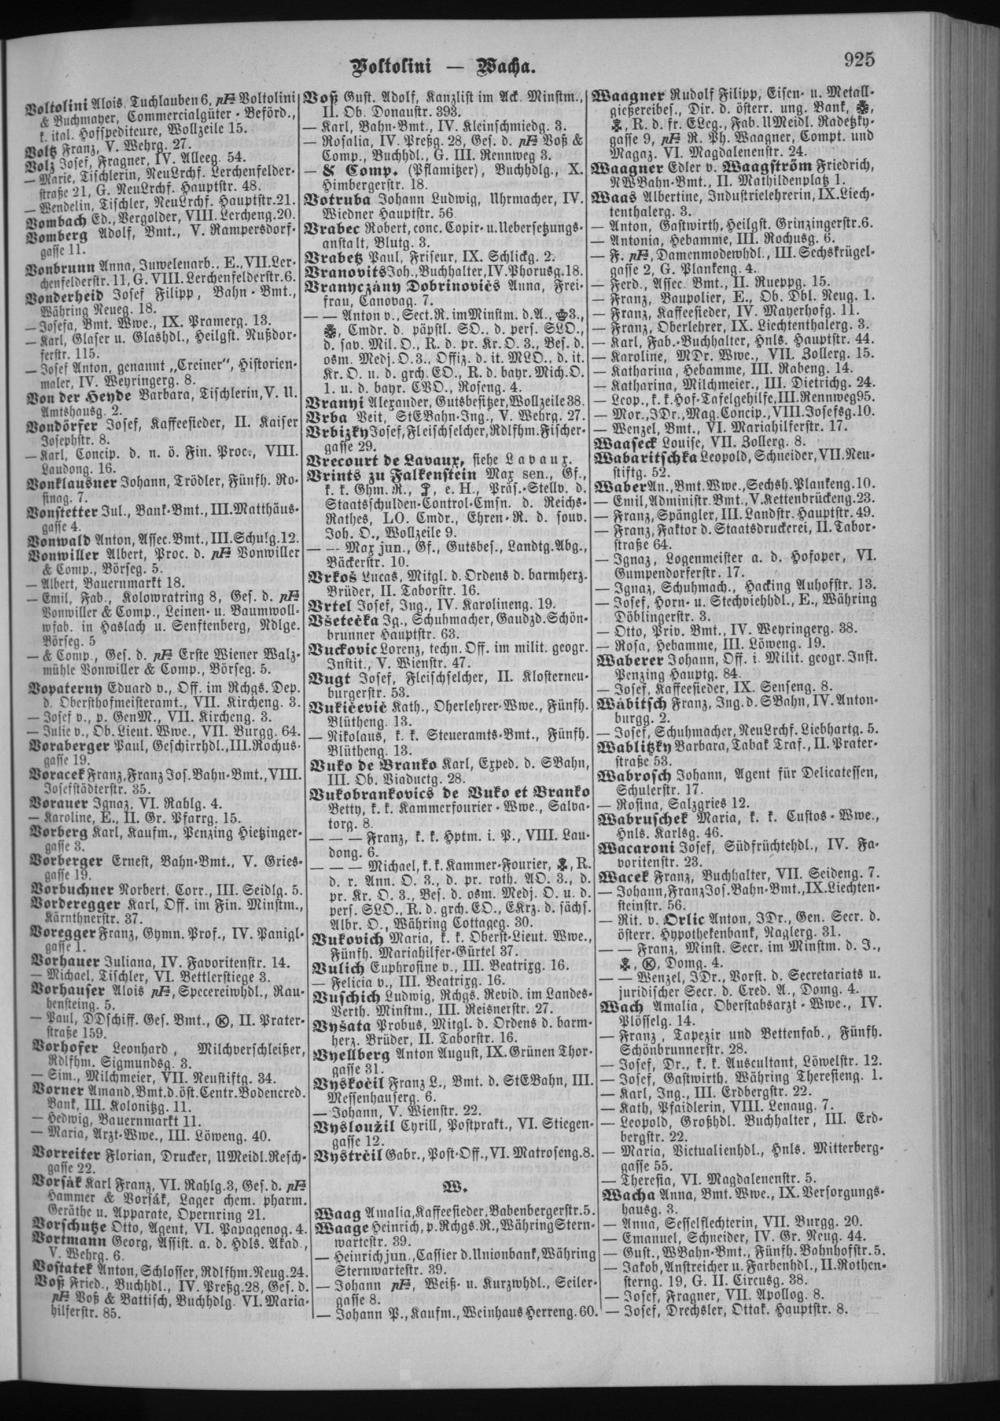 Voltolini — Wacha.
925
Voltolini Alois, Tuchlauben 6, Voltolini
& Buchmayer, Commercialgüter-Beförd.,
k. ital. Hofspediteure, Wollzeile 15.
Voltz Franz, V. Wehrg. 27.
Volz Josef, Fragner, IV. Alleeg. 54.
— Marie, Tischlerin, NeuLrchf. Lerchenfelder-
straße 21, G. NeuLrchf. Hauptstr. 48.
— Wendelin, Tischler, NeuLrchf. Hauptstr. 21.
Vombach Ed., Vergolder, VIII. Lercheng. 20.
Vomberg Adolf, Bmt., V. Rampersdorf-
gasse 11.
Vonbrunn Anna, Juwelenarb., E., VII. Ler-
chenfelderstr. 11, G. VIII. Lerchenfelderstr. 6.
Vonderheid Josef Filipp, Bahn-Bmt.,
Währing Neueg. 18.
— Josefa, Bmt. Wwe., IX. Pramerg. 13.
— Karl, Glaser u. Glashdl., Heilgst. Nußdor-
ferstr. 115.
— Josef Anton, genannt „Creiner", Historien-
maler, IV. Weyringerg. 8.
Von der Heyde Barbara, Tischlerin, V. U.
Amtshausg. 2.
Vondörfer Josef, Kaffeesieder, II. Kaiser
Josephstr. 8.
— Karl, Concip. d. n. ö. Fin. Proc., VIII.
Laudong. 16.
Vonklausner Johann, Trödler, Fünfh. Ro-
sinag. 7.
Vonstetter Jul., Bank-Bmt., III. Matthäus-
gasse 4.
Vonwald Anton, Assec. Bmt., III. Schulg. 12.
Vonwiller Albert, Proc. d. Vonwiller
& Comp., Börseg. 5.
— Albert, Bauernmarkt 18.
— Emil, Fab., Kolowratring 8, Ges. d.
Vonwiller & Comp., Leinen- u. Baumwoll-
wfab. in Haslach u. Senftenberg, Ndlge.
Börseg. 5
— & Comp., Ges. d. Erste Wiener Walz-
mühle Vonwiller & Comp., Börseg. 5.
Vopaterny Eduard v., Off. im Rchgs. Dep.
d. Obersthofmeisteramt., VII. Kircheng. 3.
— Josef v., p. GenM., VII. Kircheng. 3.
— Julie v., Ob. Lieut. Wwe., VII. Burgg. 64.
Voraberger Paul, Geschirrhdl., III. Rochus-
gasse 19.
Voracek Franz, Franz Jos. Bahn-Bmt., VIII.
Josefstädterstr. 35.
Vorauer Ignaz, VI. Rahlg. 4.
— Karoline, E., II. Gr. Pfarrg. 15.
Vorberg Karl, Kaufm., Penzing Hietzinger-
gasse 3.
Vorberger Ernest, Bahn-Bmt., V. Gries-
gasse 19.
Vorbuchner Norbert, Corr., III. Seidlg. 5.
Vorderegger Karl, Off. im Fin. Minstm.,
Kärnthnerstr. 37.
Voregger Franz, Gymn. Prof., IV. Panigl-
gasse 1.
Vorhauer Juliana, IV. Favoritenstr. 14.
— Michael, Tischler, VI. Bettlerstiege 3.
Vorhauser Alois, Specereiwhdl., Rau-
hensteing. 5.
— Paul, DDschiff. Ges. Bmt., II. Prater-
straße 159.
Vorhofer Leonhard, Milchverschleißer,
Rdlfhm. Sigmundsg. 3.
— Sim., Milchmeier, VII. Neustiftg. 34.
Vorner Amand, Bmt. d. öst. Centr. Bodencred.
Bank, III. Kolonitzg. 11.
— Hedwig, Bauernmarkt 11.
— Maria, Arzt-Wwe., III. Löweng. 40.
Vorreiter Florian, Drucker, UMeidl. Resch-
gasse 22.
Vorsák Karl Franz, VI. Rahlg. 3, Ges. d.
Hammer & Vorsák, Lager chem. pharm.
Geräthe u. Apparate, Opernring 21.
Vorschutze Otto, Agent, VI. Papagenog. 4.
Vortmann Georg, Assist. a. d. Hdls. Akad.,
V. Wehrg. 6.
Vostatek Anton, Schlosser, Rdlfhm. Neug. 24.
Voß Fried., Buchhdl., IV. Preßg. 28, Ges. d.
Voß & Battisch, Buchhdlg. VI. Maria-
hilferstr. 85.
Voß Gust. Adolf, Kanzlist im Ack. Minstm.,
II. Ob. Donaustr. 393.
— Karl, Bahn-Bmt., IV. Kleinschmiedg. 3.
— Rosalia, IV. Preßg. 28, Ges. d. Voß &
Comp., Buchhdl., G. III. Rennweg 3.
— & Comp. (Pflamitzer), Buchhdlg., X.
Himbergerstr. 18.
Votruba Johann Ludwig, Uhrmacher, IV.
Wiedner Hauptstr. 56
Vrabec Robert, conc. Copir- u. Uebersetzungs-
anstalt, Blutg. 3.
Vrabetz Paul, Friseur, IX. Schlickg. 2.
Vranovits Joh., Buchhalter, IV. Phorusg. 18.
Vranyczány Dobrinoviés Anna, Frei-
frau, Canovag. 7.
— — Anton v., Sect. R. im Minstm. d. A., 3.,
Cmdr. d. päpstl. SO., d. pers. SLO.,
d. sav. Mil. O., R. d. pr. Kr. O. 3., Bes. d.
osm. Medj. O. 3., Offiz. d. it. MLO., d. it.
Kr. O. u. d. grch. EO., R. d. bayr. Mich. O.
1. u. d. bayr. CVO., Roseng. 4.
Vranyi Alexander, Gutsbesitzer, Wollzeile 38.
Vrba Veit, StEBahn-Ing., V. Wehrg. 27.
Vrbizky Josef, Fleischselcher, Rdlfhm. Fischer-
gasse 29.
Vrecourt de Lavaux, siehe Lavaux.
Vrints zu Falkenstein Max sen., Gf.,
k. k. Ghm. R., e. H., Präs.-Stellv. d.
Staatsschulden-Control-Cmsn. d. Reichs-
Rathes, LO. Cmdr., Ehren-R. d. souv.
Joh. O., Wollzeile 9.
— — Max jun., Gf., Gutsbes., Landtg. Abg.,
Bäckerstr. 10.
Vrkoš Lucas, Mitgl. d. Ordens d. barmherz.
Brüder, II. Taborstr. 16.
Vrtel Josef, Ing., IV. Karolineng. 19.
Všetečka Ig., Schuhmacher, Gaudzd. Schön-
brunner Hauptstr. 63.
Vuckovic Lorenz, techn. Off. im milit. geogr.
Instit., V. Wienstr. 47.
Vugt Josef, Fleischselcher, II. Klosterneu-
burgerstr. 53.
Vukičevič Kath., Oberlehrer-Wwe., Fünfh.
Blütheng. 13.
— Nikolaus, k. k. Steueramts-Bmt., Fünfh.
Blütheng. 13.
Vuko de Branko Karl, Exped. d. SBahn,
III. Ob. Viaductg. 28.
Vukobrankovics de Vuko et Branko
Betty, k. k. Kammerfourier-Wwe., Salva-
torg. 8.
— — — Franz, k. k. Hptm. i. P., VIII. Lau-
dong. 6.
— — — Michael, k. k. Kammer-Fourier, R.
d. r. Ann. O. 3., d. pr. roth. AO. 3., d.
pr. Kr. O. 3., Bes. d. osm. Medj. O. u. d.
pers. SLO., R. d. grch. EO., EKrz. d. sächs.
Albr. O., Währing Cottageg. 30.
Vukovich Maria, k. k. Oberst-Lieut. Wwe.,
Fünfh. Mariahilfer-Gürtel 37.
Vulich Euphrosine v., III. Beatrixg. 16.
— Felicia v., III. Beatrixg. 16.
Vuschich Ludwig, Rchgs. Revid. im Landes-
Verth. Minstm., III. Reisnerstr. 27.
Vyšata Probus, Mitgl. d. Ordens d. barm-
herz. Brüder, II. Taborstr. 16.
Vyellberg Anton August, IX. Grünen Thor-
gasse 31.
Vyskočil Franz L., Bmt. d. StEBahn, III.
Messenhauserg. 6.
— Johann, V. Wienstr. 22.
Vysloužil Cyrill, Postprakt., VI. Stiegen-
gasse 12.
Vystrčil Gabr., Post-Off., VI. Matroseng. 8.
W.
Waag Amalia, Kaffeesieder, Babenbergerstr. 5.
Waage Heinrich, p. Rchgs. R., Währing Stern-
wartestr. 39.
— Heinrich jun., Cassier d. Unionbank, Währing
Sternwartestr. 39.
— Johann, Weiß- u. Kurzwhdl., Seiler-
gasse 8.
— Johann P., Kaufm., Weinhaus Herreng. 60.
Waagner Rudolf Filipp, Eisen- u. Metall-
gießereibes., Dir. d. österr. ung. Bank,
R. d. fr. ELeg., Fab. UMeidl. Radetzky-
gasse 9, R. Ph. Waagner, Compt. und
Magaz. VI. Magdalenenstr. 24.
Waagner Edler v. Waagström Friedrich,
NWBahn-Bmt., II. Mathildenplatz 1.
Waas Albertine, Industrielehrerin, IX. Liech-
tenthalerg. 3.
— Anton, Gastwirth, Heilgst. Grinzingerstr. 6.
— Antonia, Hebamme, III. Rochusg. 6.
— F., Damenmodewhdl., III. Sechskrügel-
gasse 2, G. Plankeng. 4.
— Ferd., Assec. Bmt., II. Rueppg. 15.
— Franz, Baupolier, E., Ob. Dbl. Neug. 1.
— Franz, Kaffeesieder, IV. Mayerhofg. 11.
— Franz, Oberlehrer, IX. Liechtenthalerg. 3.
— Karl, Fab.-Buchhalter, Hnls. Hauptstr. 44.
— Karoline, MDr. Wwe., VII. Zollerg. 15.
— Katharina, Hebamme, III. Rabeng. 14.
— Katharina, Milchmeier., III. Dietrichg. 24.
— Leop., k. k. Hof-Tafelgehilfe, III. Rennweg 95.
— Mor., JDr., Mag. Concip., VIII. Josefsg. 10.
— Wenzel, Bmt., VI. Mariahilferstr. 17.
Waaseck Louise, VII. Zollerg. 8.
Wabaritschka Leopold, Schneider, VII. Neu-
stiftg. 52.
Waber An., Bmt. Wwe., Sechsh. Plankeng. 10.
— Emil, Administr. Bmt., V. Kettenbrückeng. 23.
— Franz, Spängler, III. Landstr. Hauptstr. 49.
— Franz, Faktor d. Staatsdruckerei, II. Tabor-
straße 64.
— Ignaz, Logenmeister a. d. Hofoper, VI.
Gumpendorferstr. 17.
— Ignaz, Schuhmach., Hacking Auhofstr. 13.
— Josef, Horn- u. Stechviehhdl., E., Währing
Döblingerstr. 3.
— Otto, Priv. Bmt., IV. Weyringerg. 38.
— Rosa, Hebamme, III. Löweng. 19.
Waberer Johann, Off. i. Milit. geogr. Inst.
Penzing Hauptg. 84.
— Josef, Kaffeesieder, IX. Senseng. 8.
Wábitsch Franz, Ing. d. SBahn, IV. Anton-
burgg. 2.
— Josef, Schuhmacher, NeuLrchf. Liebhartg. 5.
Wablitzky Barbara, Tabak Traf., II. Prater-
straße 53.
Wabrosch Johann, Agent für Delicatessen,
Schulerstr. 17.
— Rosina, Salzgries 12.
Wabruschek Maria, k. k. Custos-Wwe.,
Hnls. Karlsg. 46.
Wacaroni Josef, Südfrüchtehdl., IV. Fa-
voritenstr. 23.
Wacek Franz, Buchhalter, VII. Seideng. 7.
— Johann, Franz Jos. Bahn-Bmt., IX. Liechten-
steinstr. 56.
— Rit. v. Orlic Anton, JDr., Gen. Secr. d.
österr. Hypothekenbank, Naglerg. 31.
— — Franz, Minst. Secr. im Minstm. d. J.,
Domg. 4.
— — Wenzel, JDr., Vorst. d. Secretariats u.
juridischer Secr. d. Cred. A., Domg. 4.
Wach Amalia, Oberstabsarzt-Wwe., IV.
Plösselg. 14.
— Franz, Tapezir und Bettenfab., Fünfh.
Schönbrunnerstr. 28.
— Josef, Dr., k. k. Auscultant, Löwelstr. 12.
— Josef, Gastwirth. Währing Theresieng. 1.
— Karl, Ing., III. Erdbergstr. 22.
— Kath, Pfaidlerin, VIII. Lenaug. 7.
— Leopold, Großhdl. Buchhalter, III. Erd-
bergstr. 22.
— Maria, Victualienhdl., Hnls. Mitterberg-
gasse 55.
— Theresia, VI. Magdalenenstr. 5.
Wacha Anna, Bmt. Wwe., IX. Versorgungs-
hausg. 3.
— Anna, Sesselflechterin, VII. Burgg. 20.
— Emanuel, Schneider, IV. Gr. Neug. 44.
— Gust., WBahn-Bmt., Fünfh. Bohnhofstr. 5.
— Jakob, Anstreicher u. Farbenhdl., II. Rothen-
sterng. 19, G. II. Circusg. 38.
— Josef, Fragner, VII. Apollog. 8.
— Josef, Drechsler, Ottak. Hauptstr. 8.